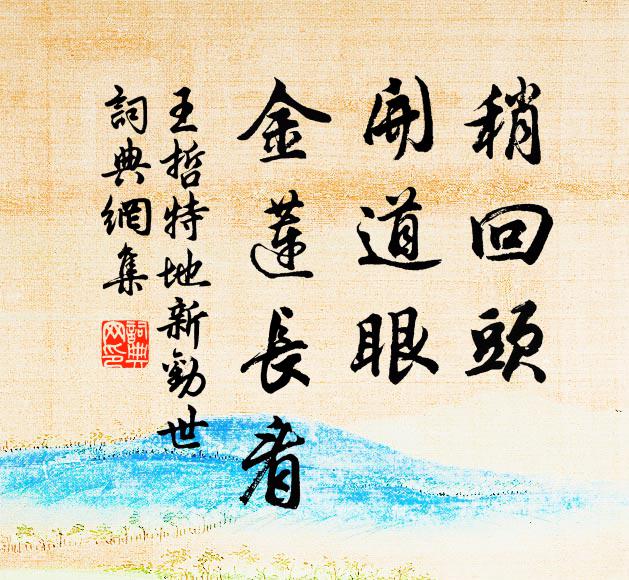 稍回頭
開道眼
金蓮長看
王哲特地新勸世
詞典網集
詞典网印